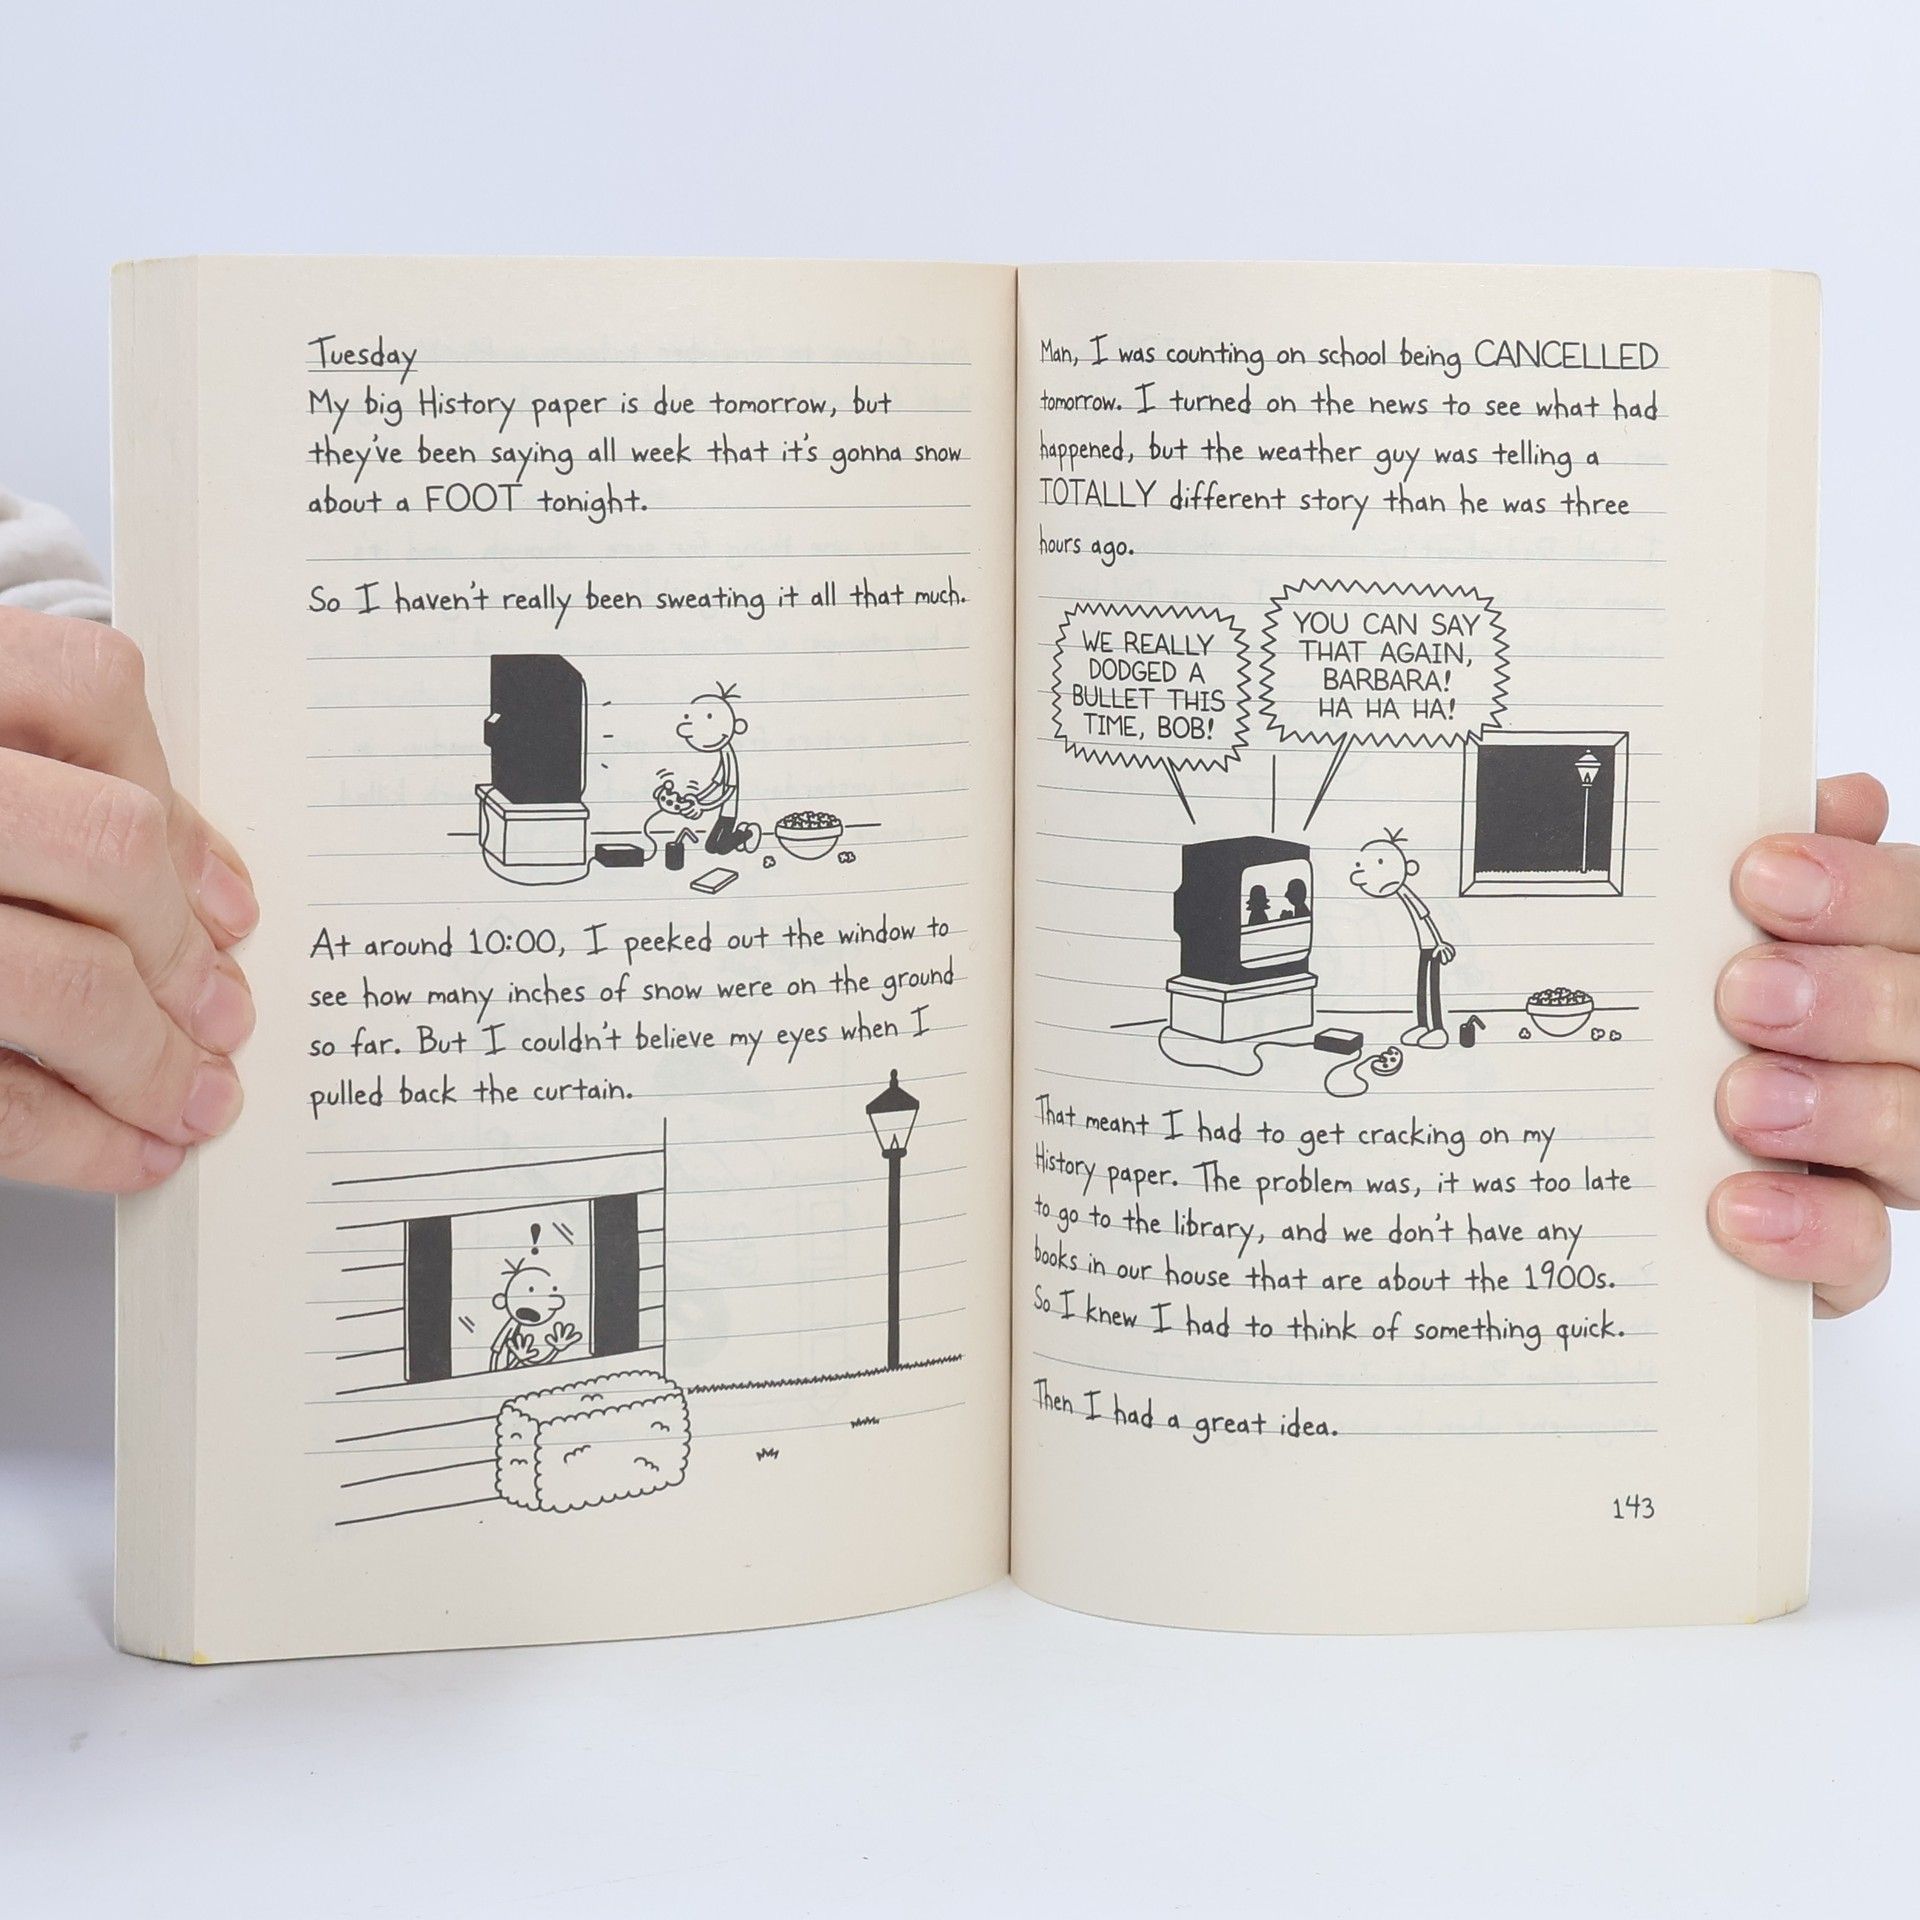 Tuesday
My big History paper is due tomorrow, but
they've been saying all week that it's gonna snow
about a FOOT tonight.
So I haven't really been sweating it all that much.
At around 10:00, I peeked out the window to
see how many inches of snow were on the ground
so far. But I couldn't believe my eyes when I
pulled back the curtain.
!
Man, I was counting on school being CANCELLED
tomorrow. I turned on the news to see what had
happened, but the weather guy was telling a
TOTALLY different story than he was three
hours ago.
WE REALLY
DODGED A
BULLET THIS
TIME, BOB!
YOU CAN SAY
THAT AGAIN,
BARBARA!
HA HA HA!
That meant I had to get cracking on my
History paper. The problem was, it was too late
to go to the library, and we don't have any
books in our house that are about the 1900s.
So I knew I had to think of something quick.
Then I had a great idea.
143